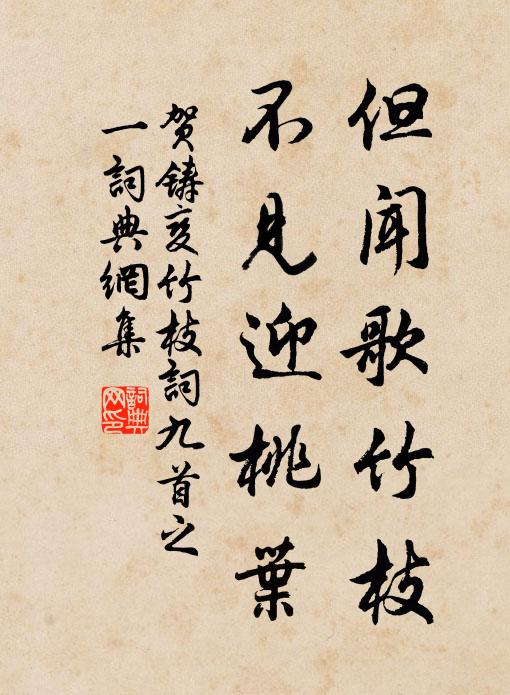 但闻歌竹枝
不见迎桃葉
贺鋳变竹枝詞九首之
一詞典網集
詞典
网印